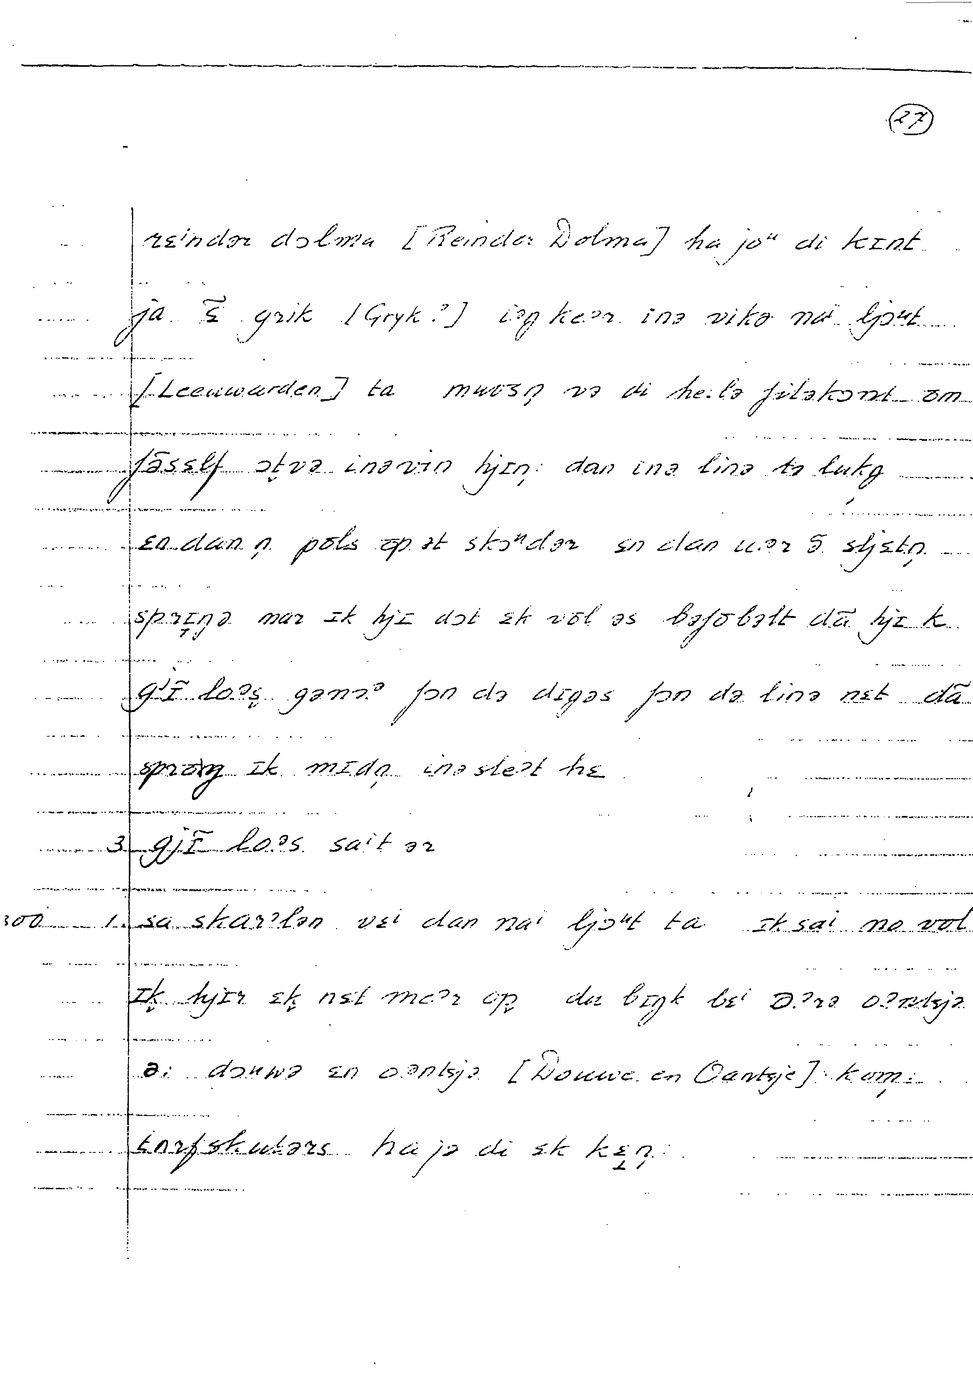 27
rɛⁱndər dɔlma [Reinder Dolma] ha joᵘ di kɪnt
ja ɛ̄ grik [Gryk?] iəŋ keər inə vikə naⁱ ljɔᵘt
[Leeuwarden] ta mwɔzn̩ və di he:lə fitəkɔnt om
fāsslf ɔt̬və inəvin hjɪn̩: dan inə linə tə lukŋ
ɛn dan n̩ pōls ōp ət skɔᵘdər ɛn dan u.ər ō sljɛtn̩
sprɪŋə mar ɪk hjɪ dɔt ɛk vōl əs bəfōbəlt dā hjɪ k
gʲɪ̄ loəs̬ gənɔə fɔn də dɪgəs fɔn də linə nɛt dā
sprōŋ ɪk mɪdn̩ inəsleət hɛ
3 gjɪ̄ loəs saⁱt ər
300 1. sa skarəlɔn vɛⁱ dan naⁱ ljɔᵘt ta ɪk saⁱ nə vōl
ɪk̬ hjɪr ɛk̬ nɛt meər op̬ du bɪŋk bɛⁱ ɔ.ərə oəntsjə
ə: dɔuwə ɛn oəntsjə [Douwe en Oantsje] kom:
tørfskutərs ha jə di ɛk kɛn̩: